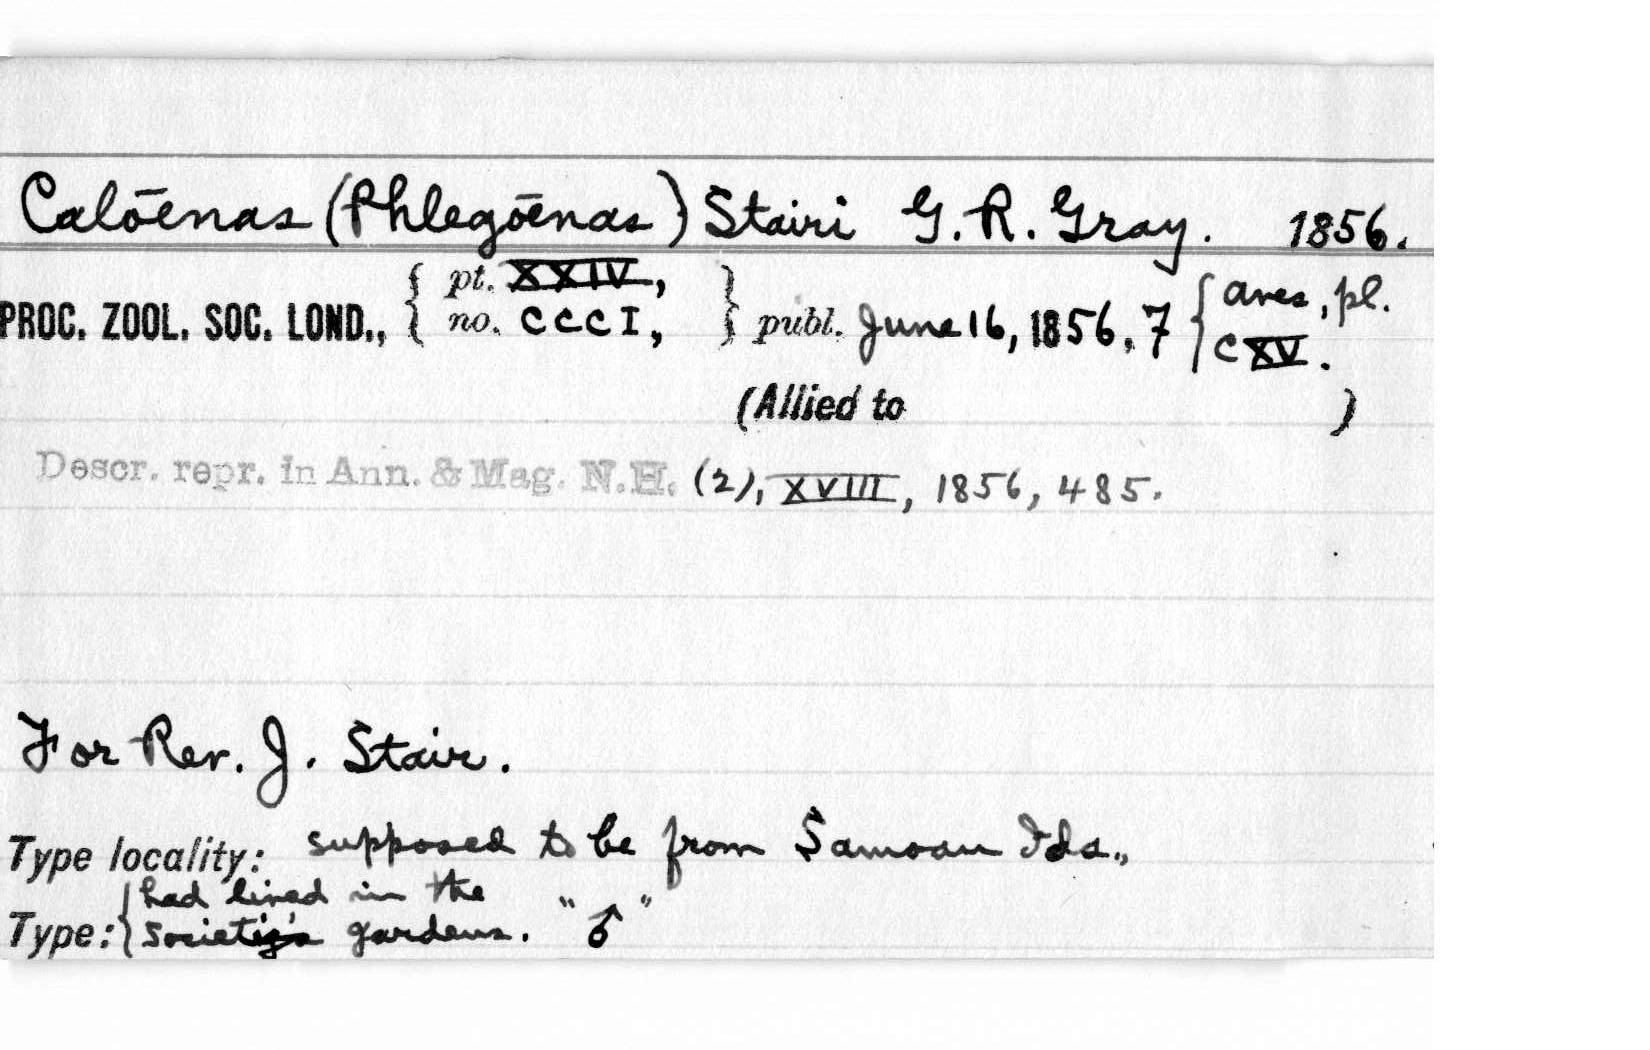 Calōenas (Phlegōenas) Stairi G. R. Gray. 1856.
PROC. ZOOL. SOC. LOND., { pt. XXIV, no. CCCI, } publ. June 16, 1856, 7 { aves, pl. CXV.
(Allied to )
Descr. repr. in Ann. & Mag. N.H. (2), XVIII, 1856, 485.
For Rev. J. Stair.
Type locality: supposed to be from Samoan Ids.,
Type: { had lived in the Society's gardens. "♂"